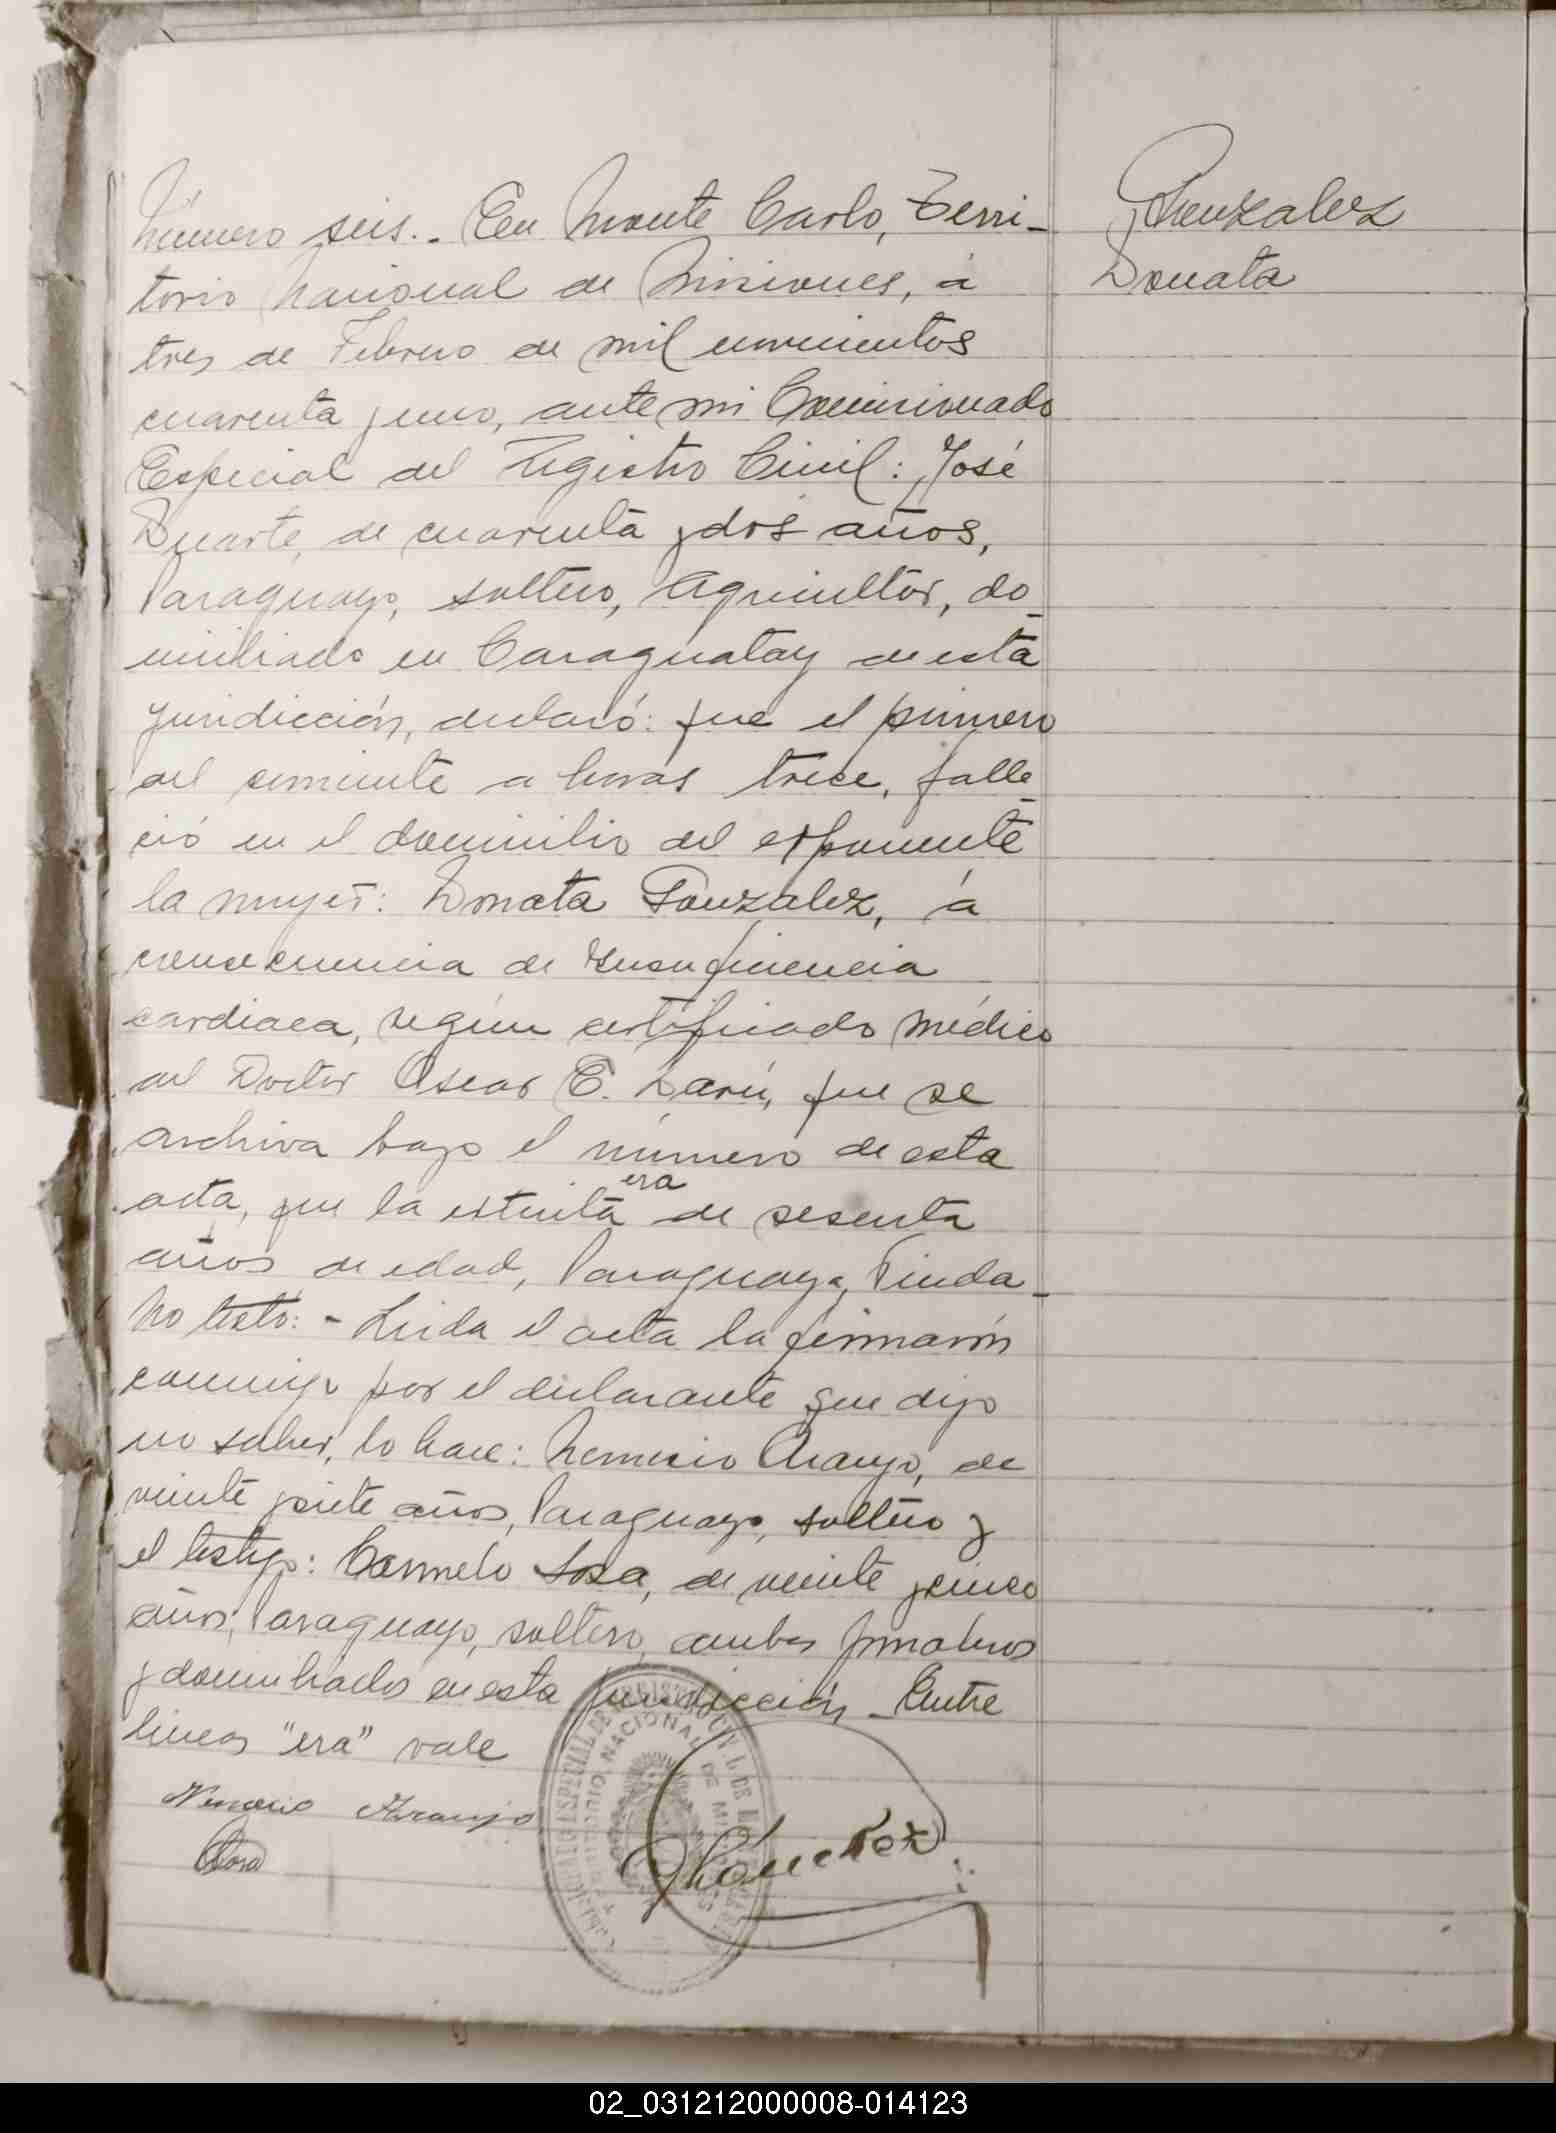 Número seis.. En Monte Carlo, Terri-
torio Nacional de Misiones, á
tres de Febrero de mil novecientos
cuarenta y uno, ante mi Comisionado
Especial del Registro Civil: José
Duarte, de cuarenta y dos años,
Paraguayo, soltero, Agricultor, do-
miciliado en Caraguatay de esta
juridicción, declaró: que el primero
del corriente a horas trece, falle-
ció en el domicilio del esponente
la mujer: Donata Gonzalez, á
consecuencia de Insuficiencia
cardiaca, según certificado médico
del Doctor Oscar E. Darú, que se
archiva bajo el número de esta
acta, que la extinta era de sesenta
años de edad, Paraguaya, Viuda-
No testó: - Leida el acta la firmarón
conmigo por el declarante que dijo
no saber, lo hace: Nemecio Araujo, de
veinte y siete años, Paraguayo, soltero y
el testigo: Carmelo Sosa, de veinte y cinco
años, Paraguayo, soltero, ambos jornaleros
y domiciliados en esta juridicción - Entre
lineas "era" vale
Nemecio Araujo
Sosa
Gonzalez
Donata
ESPECIAL DE REGISTRO CIVIL DE
TERRITORIO NACIONAL DE MISIONES
02_031212000008-014123